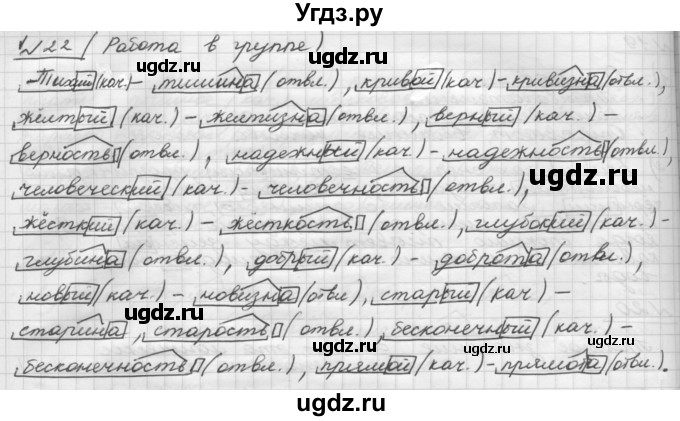 Угдз.ру
№22 (Работа в группе)
Тихий (кач.) - тишина (отвл.), кривой (кач.) - кривизна (отвл.),
жёлтый (кач.) - желтизна (отвл.), верный (кач.) -
верность (отвл.), надежный (кач.) - надежность (отвл.),
человеческий (кач.) - человечность (отвл.),
жёсткий (кач.) - жёсткость (отвл.), глубокий (кач.) -
глубина (отвл.), добрый (кач.) - доброта (отвл.),
новый (кач.) - новизна (отвл.), старый (кач.) -
старина, старость (отвл.), бесконечный (кач.) -
бесконечность (отвл.), прямой (кач.) - прямота (отвл.).
ugdz.ru
ugdz.ru
ugdz.ru
ugdz.ru
ugdz.ru
ugdz.ru
ugdz.ru
ugdz.ru
ugdz.ru
ugdz.ru
ugdz.ru